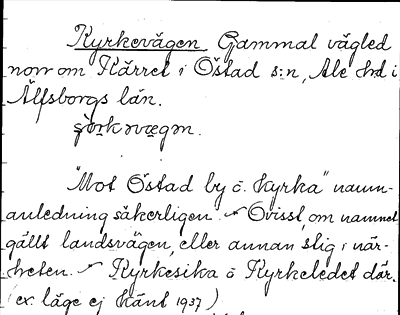 Kyrkevägen Gammal vägled
norr om Kärret i Östad s:n, Ale hd i
Älfsborgs län.
"Mot Östad by o. kyrka" namn-
anledning säkerligen. – Ovisst, om namnet
gällt landsvägen, eller annan stig i när-
heten. – Kyrkesika o Kyrkeledet där.
(ex. läge ej känt 1937)